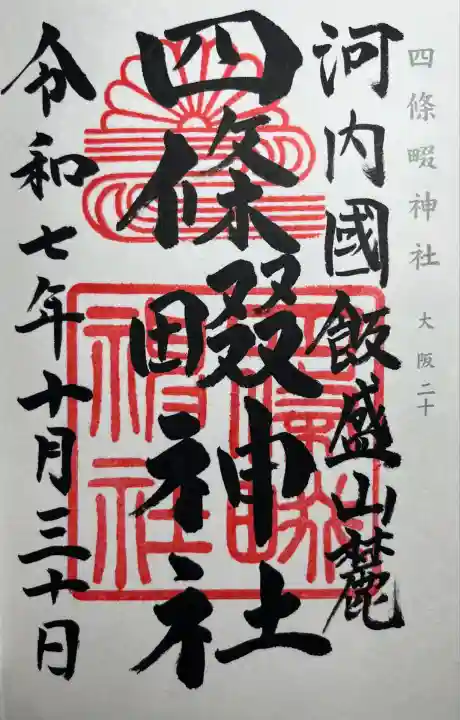 四條畷神社 大阪二十
河内國飯盛山麓
四條畷神社
令和七年十月三十日
四條畷神社